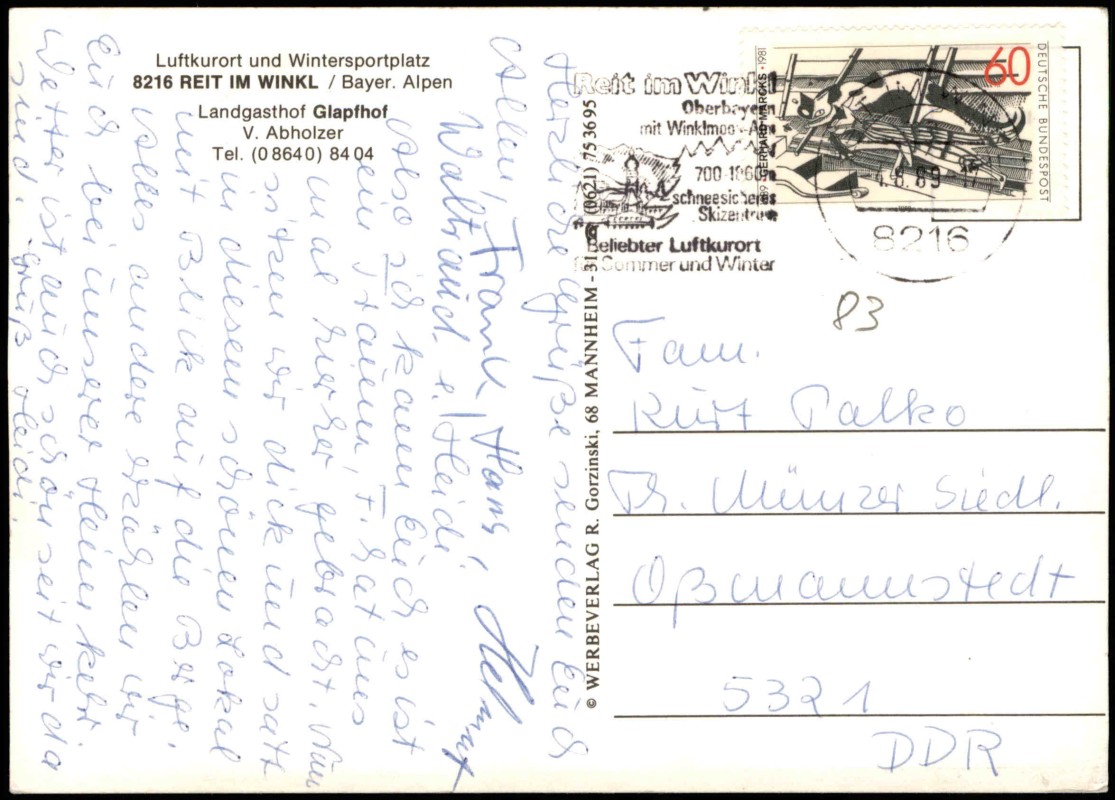 Luftkurort und Wintersportplatz
8216 REIT IM WINKL / Bayer. Alpen
Landgasthof Glapfhof
V. Abholzer
Tel. (0 86 40) 84 04
Herzliche Grüße senden Euch
Allen Frank, Hans, Helmut
Waltraud u. Heidi.
Also ich kann Euch es ist
ein Traum, F. hat uns
mal hierher gebracht. Nun
sitzen wir dick und satt
in diesem schönen Lokal
mit Blick auf die Berge.
Alles andere erzählen wir
Euch bei unserer Heimkehr.
Wetter ist auch schön seit wir da
sind. Gruß Heidi.
© WERBEVERLAG R. Gorzinski, 68 MANNHEIM - 31 (0621) 753695
Reit im Winkl
Oberbayern
mit Winklmoos-Alm
700-1860m
schneesicheres
Skizentrum
Beliebter Luftkurort
Sommer und Winter
60
DEUTSCHE BUNDESPOST
GERHARD MARCKS · 1981
89
8216
83
Fam.
Kurt Palko
Th. Münzer Siedl.
Oßmannstedt
5321
DDR